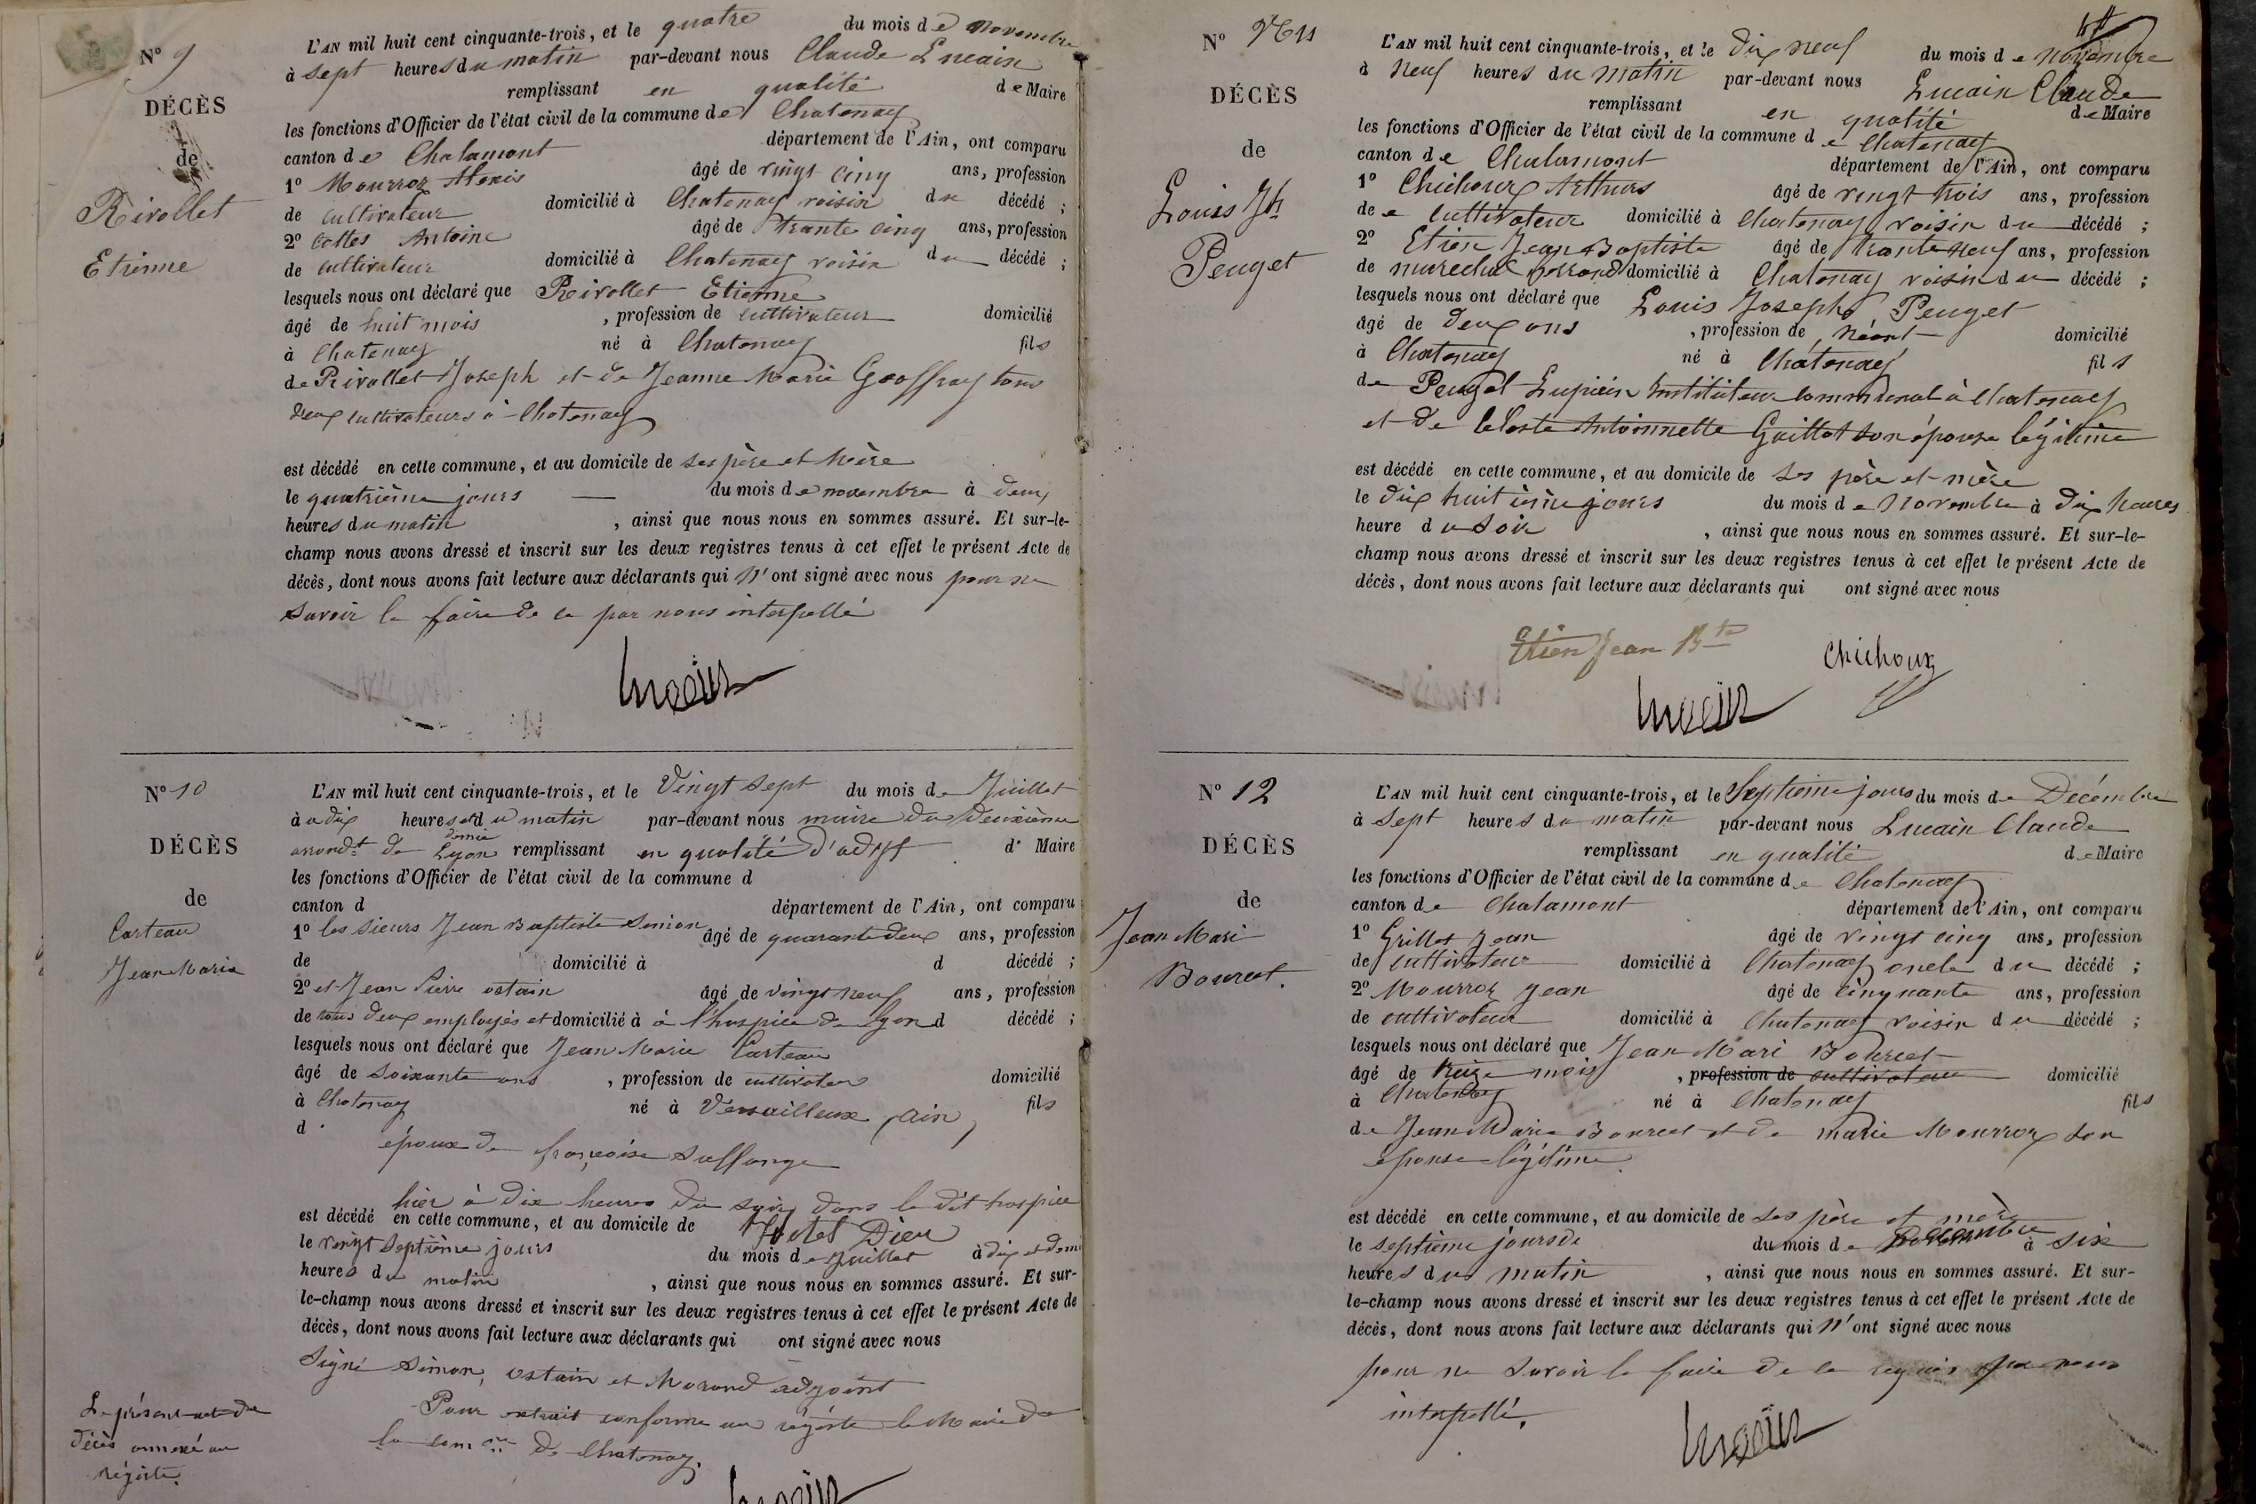 N° 9
DÉCÈS
de
Rivollet
Etienne
L'AN mil huit cent cinquante-trois, et le quatre du mois de Novembre
à sept heures du matin par-devant nous Claude Lucain
remplissant en qualité de Maire
les fonctions d'Officier de l'état civil de la commune de Chatenay
canton de Chalamont département de l'Ain, ont comparu
1° Mourroz Alexis âgé de vingt cinq ans, profession
de cultivateur domicilié à Chatenay voisin du décédé ;
2° Cottes Antoine âgé de trante cinq ans, profession
de cultivateur domicilié à Chatenay voisin du décédé ;
lesquels nous ont déclaré que Rivollet Etienne
âgé de huit mois , profession de cultivateur domicilié
à Chatenay né à Chatenay fils
de Rivollet Joseph et de Jeanne Marie Geoffray tous
deux cultivateurs à Chatenay
est décédé en cette commune, et au domicile de ses père et mère
le quatrième jours du mois de novembre à deux
heures du matin , ainsi que nous nous en sommes assuré. Et sur-le-
champ nous avons dressé et inscrit sur les deux registres tenus à cet effet le présent Acte de
décès, dont nous avons fait lecture aux déclarants qui n'ont signé avec nous pour ne
savoir le faire de ce par nous interpellé
Lucain
N° 10
DÉCÈS
de
Carteau
Jean Marie
L'AN mil huit cent cinquante-trois, et le Vingt sept du mois de Juillet
à dix heures et du matin par-devant nous maire du deuxième
demie
arrondt de Lyon remplissant en qualité d'adjt d' Maire
les fonctions d'Officier de l'état civil de la commune d
canton d département de l'Ain, ont comparu
1° les sieurs Jean Baptiste Simon âgé de quarante deux ans, profession
de domicilié à d décédé ;
2° et Jean Pierre ostain âgé de vingt neuf ans, profession
de tous deux employés et domicilié à à l'hospice de Lyon d décédé ;
lesquels nous ont déclaré que Jean Marie Carteau
âgé de soixante ans , profession de cultivateur domicilié
à Chatenay né à Versailleux (Ain) fils
d
époux de françoise Suffange
hier à dix heures du soir, dans le dit hospice
est décédé en cette commune, et au domicile de Hotel Dieu
le vingt septième jours du mois de Juillet à dix et demi
heures du matin , ainsi que nous nous en sommes assuré. Et sur-
le-champ nous avons dressé et inscrit sur les deux registres tenus à cet effet le présent Acte de
décès, dont nous avons fait lecture aux déclarants qui ont signé avec nous
Signé Simon, ostain et Morand adjoint
Pour extrait conforme au régistre le Maire de
la comne de Chatenay.
Le présent act de
décès annexé au
régistre.
Lucain
N° 11
DÉCÈS
de
Louis Jh
Peuget
L'AN mil huit cent cinquante-trois, et le dix neuf du mois de novembre
à neuf heures du matin par-devant nous Lucain Claude
remplissant en qualité de Maire
les fonctions d'Officier de l'état civil de la commune de Chatenay
canton de Chalamont département de l'Ain, ont comparu
1° Chichoux Arthurs âgé de vingt trois ans, profession
de cultivateur domicilié à Chatenay voisin du décédé ;
2° Etien Jean Baptiste âgé de trante neuf ans, profession
de marechal domicilié à Chatenay voisin du décédé ;
lesquels nous ont déclaré que Louis Joseph Peuget
âgé de deux ans , profession de néant domicilié
à Chatenay né à Châtenay fils
de Peuget Lupicin Instituteur communal à Chatenay
et de Celeste Antoinnette Guillot son épouse légitime
est décédé en cette commune, et au domicile de ses père et mère
le dix huit ième jours du mois de Novembre à dix heures
heure du soir , ainsi que nous nous en sommes assuré. Et sur-le-
champ nous avons dressé et inscrit sur les deux registres tenus à cet effet le présent Acte de
décès, dont nous avons fait lecture aux déclarants qui ont signé avec nous
Etien Jean Bte
Chichoux
Lucain
N° 12
DÉCÈS
de
Jean Mari
Bourcet.
L'AN mil huit cent cinquante-trois, et le Septieme jours du mois de Décembre
à sept heures du matin par-devant nous Lucain Claude
remplissant en qualité de Maire
les fonctions d'Officier de l'état civil de la commune de Chatenay
canton de Chalamont département de l'Ain, ont comparu
1° Grillet Jean âgé de vingt cinq ans, profession
de cultivateur domicilié à Chatenay oncle du décédé ;
2° Mourroz Jean âgé de cinquante ans, profession
de cultivateur domicilié à Chatenay voisin du décédé ;
lesquels nous ont déclaré que Jean Mari Bourcet
âgé de treize mois , profession de cultivateur domicilié
à Chatenay né à Chatenay fils
de Jean Marie Bourcet et de marie Mourroz son
épouse légitime.
est décédé en cette commune, et au domicile de ses père et mère
le septième jours de du mois de Décembre à six
heures du matin , ainsi que nous nous en sommes assuré. Et sur-
le-champ nous avons dressé et inscrit sur les deux registres tenus à cet effet le présent Acte de
décès, dont nous avons fait lecture aux déclarants qui n'ont signé avec nous
pour ne savoir le faire de ce requis par nous
interpellé.
Lucain